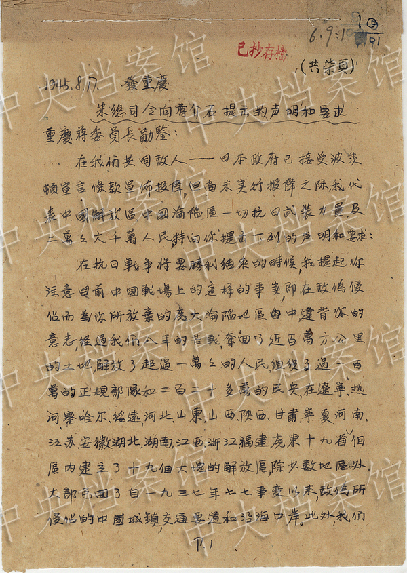 已抄存档
(共柒頁)
1945.8.17 發重慶
朱總司令向蔣介石提出的声明和要求
重慶蔣委員長勛鑒:
在我們共同敵人——日本政府已接受波茨
頓宣言條款宣佈投降但尚未实行投降之際我代
表中國解放區中國淪陷區一切抗日武裝力量及
二萬六千萬人民特向你提出下列的声明和要求:
在抗日戰爭將要勝利結束的時候,我提起你
注意目前中國戰場上的這樣的事実,即在敵偽侵
佔而為你所放棄的廣大淪陷地區中違背你的
意志經過我們八年的苦戰奪回了近百萬方公里
的土地解放了超過一萬萬的人民組織了過一百
萬的正規部隊和二百二十多萬的民兵在遼寧熱
河察哈尔綏遠河北山東山西陝西甘肅寧夏河南
江苏安徽湖北湖南江西浙江福建廣東十九省
區內建立了十九個大塊的解放區除少數地區外
大部包圍了自一九三七年七七事変以來敵偽所
侵佔的中國城鎮交通要道和沿海口岸,此外我們
1
中央档案馆